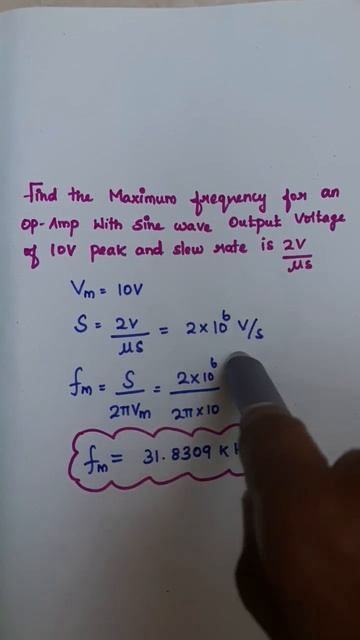 Find the Maximum frequency for an
OP-Amp With Sine wave Output Voltage
of 10V peak and slew rate is 2V/μs
Vm = 10V
S = 2V/μs = 2 × 10^6 V/s
fm = S/2πVm = 2×10^6/2π×10
fm = 31.8309 K